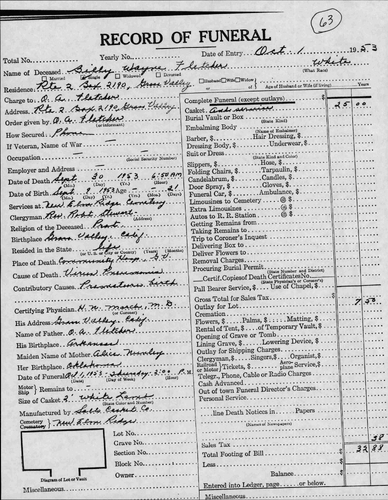 63
RECORD OF FUNERAL
Total No. Yearly No. Date of Entry Oct. 1 1953
Name of Deceased Billy Wayne Fletcher White
Married Single Widowed Divorced (What Race)
Residence: Rte 2 Box 2190, Grass Valley Husband Wife Widow
Age of Husband or Wife (if living) Years
Charge to: O. A. Fletcher
Address: Rte 2 Box 2190, Grass Valley
Order given by: O. A. Fletcher
(or Informant)
How Secured: Phone
If Veteran, Name of War
Occupation
(Social Security Number)
Employer and Address
Date of Death: Sept 30 1953 6:50 AM
Date of Birth: Sept 9 1953 Age 21
Services at: New Elm Ridge Cemetery
Clergyman: Rev. Robt. Stewart
Religion of the Deceased: Prot.
Birthplace: Grass Valley, Calif
Resided in the State: Life
Place of Death: Community Hosp. G.V.
Cause of Death: Virus Pneumonia
Contributory Causes: Premature birth
Certifying Physician: H. N. March, M D
His Address: Grass Valley, Calif.
Name of Father: O. A. Fletcher
His Birthplace: Arkansas
Maiden Name of Mother: Alice
Her Birthplace: Oklahoma
Date of Funeral: Oct 1, 1953 Thursday 2:00 P.M
(Day of Week)
Motor Ship Remains to
Size of Casket: 2' White
(State Color and Number)
Manufactured by: Casket Co.
Cemetery Crematory New Elm Ridge
Lot No.
Grave No.
Section No.
Block No.
Owner
Diagram of Lot or Vault
Miscellaneous
Complete Funeral (except outlays) $
Casket and service 25 00
Burial Vault or Box
(State Kind)
Embalming Body
(Name of Embalmer)
Barber, $ Hair Dressing, $
Dressing Body, $ Underwear, $
Suit or Dress
(State Kind and Color)
Slippers, $ Hose, $
Folding Chairs, $ Tarpaulin, $
Candelabrum, $ Candles, $
Door Spray, $ Gloves, $
Funeral Car, $ Ambulance, $
Limousines to Cemetery @ $
Extra Limousines @ $
Autos to R. R. Station @ $
Getting Remains from
Taking Remains to
Trip to Coroner's Inquest
Delivering Box to
Deliver Flowers to
Removal Charges
Procuring Burial Permit
(State Number and District)
Certif. Copies of Death Certificate No.
(State Physician's or Coroner's)
Pall Bearer Service, $ Use of Chapel, $
Gross Total for Sales Tax $
Outlay for Lot 7 50
Cremation
Flowers, $ Palms, $ Matting, $
Rental of Tent, $ of Temporary Vault, $
Opening of Grave or Tomb
Lining Grave, $ Lowering Device, $
Outlay for Shipping Charges
Clergyman, $ Singers, $ Organist, $
Railroad or Motor Tickets, $ Aeroplane Service, $
Telegr., Phone, Cable or Radio Charges
Cash Advanced
Out of town Funeral Director's Charges
Personal Service
line Death Notices in Papers
(Names or Number)
Sales Tax 38
Total Footing of Bill $ 32 88
Less $
Balance $
Entered into Ledger, page or below.
Miscellaneous